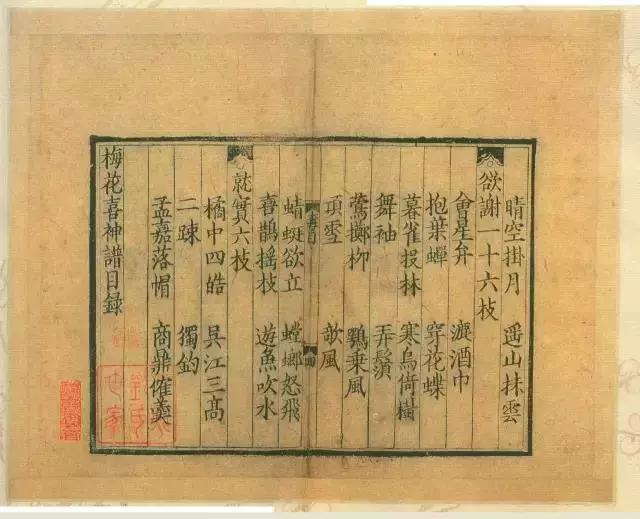 晴空掛月 遥山抹雲
欲謝一十六枝
會星弁 漉酒巾
抱葉蟬 穿花蝶
暮雀投林 寒烏倚樹
舞袖 弄鬚
鶯擲柳 乘風
頂雪 欹風
蜻蜓欲立 螳螂怒飛
喜鵲摇枝 遊魚吹水
就實六枝
橘中四皓 吴江三高
二踈 獨釣
孟嘉落帽 商鼎催羹
梅花喜神譜目録